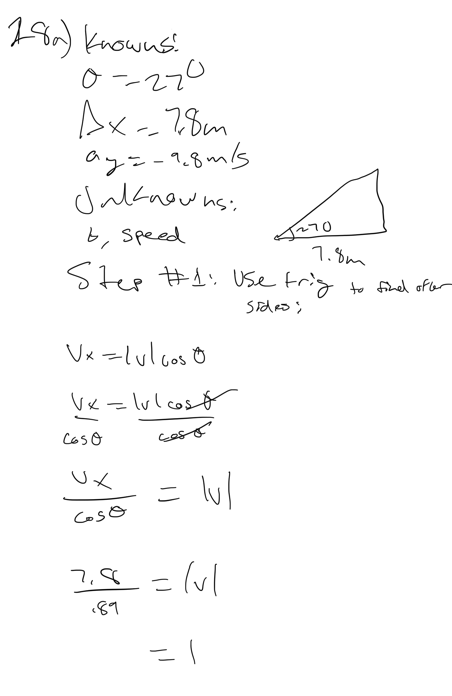 28a) Knowns:
θ = 27°
Δx = 7.8m
ay = -9.8m/s
Unknowns:
t, speed
27°
7.8m
Step #1: Use trig to find other
sides:
Vx = |v| cos θ
Vx = |v| cos θ
cos θ cos θ
Vx = |v|
cos θ
7.8 = |v|
.89
= |